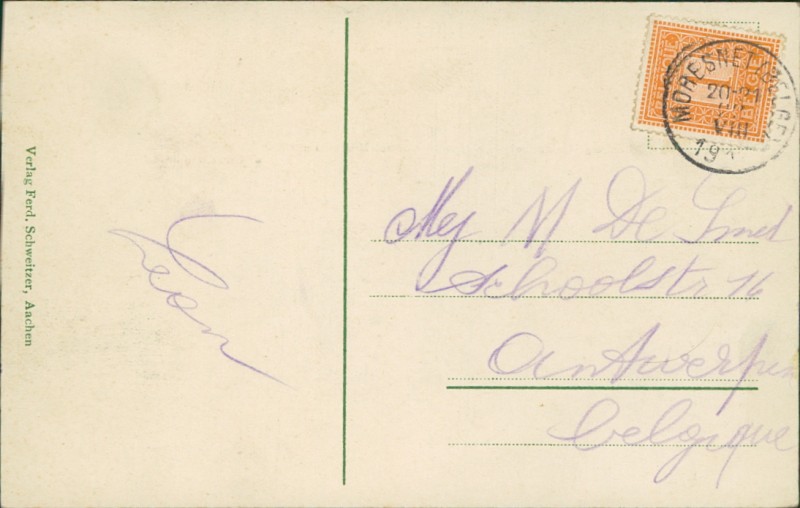 Verlag Ferd. Schweitzer, Aachen
Leon
MORESNET (BELGE)
20-21
VIII
19
1
Mej M De Smet
Schoolstr 16
Antwerpen
belgique